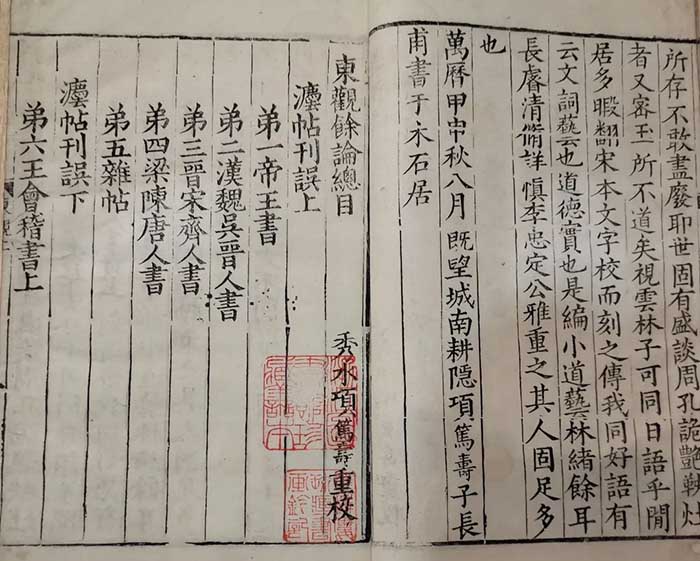 所存不敢盡廢耶世固有盛談周孔詭艷
者又審玉所不道矣視雲林子可同日語乎閒
居多暇翻宋本文字校而刻之傳我同好語有
云文詞藝也道德實也是編小道藝林緒餘耳
長睿清脩詳慎李忠定公雅重之其人固足多
也
萬曆甲申秋八月既望城南耕隱項篤壽子長
甫書于永石居
東觀餘論總目
秀水項篤壽重校
灋帖刊誤上
弟一帝王書
弟二漢魏吳晉人書
弟三晉宋齊人書
弟四梁陳唐人書
弟五雜帖
灋帖刊誤下
弟六王會稽書上